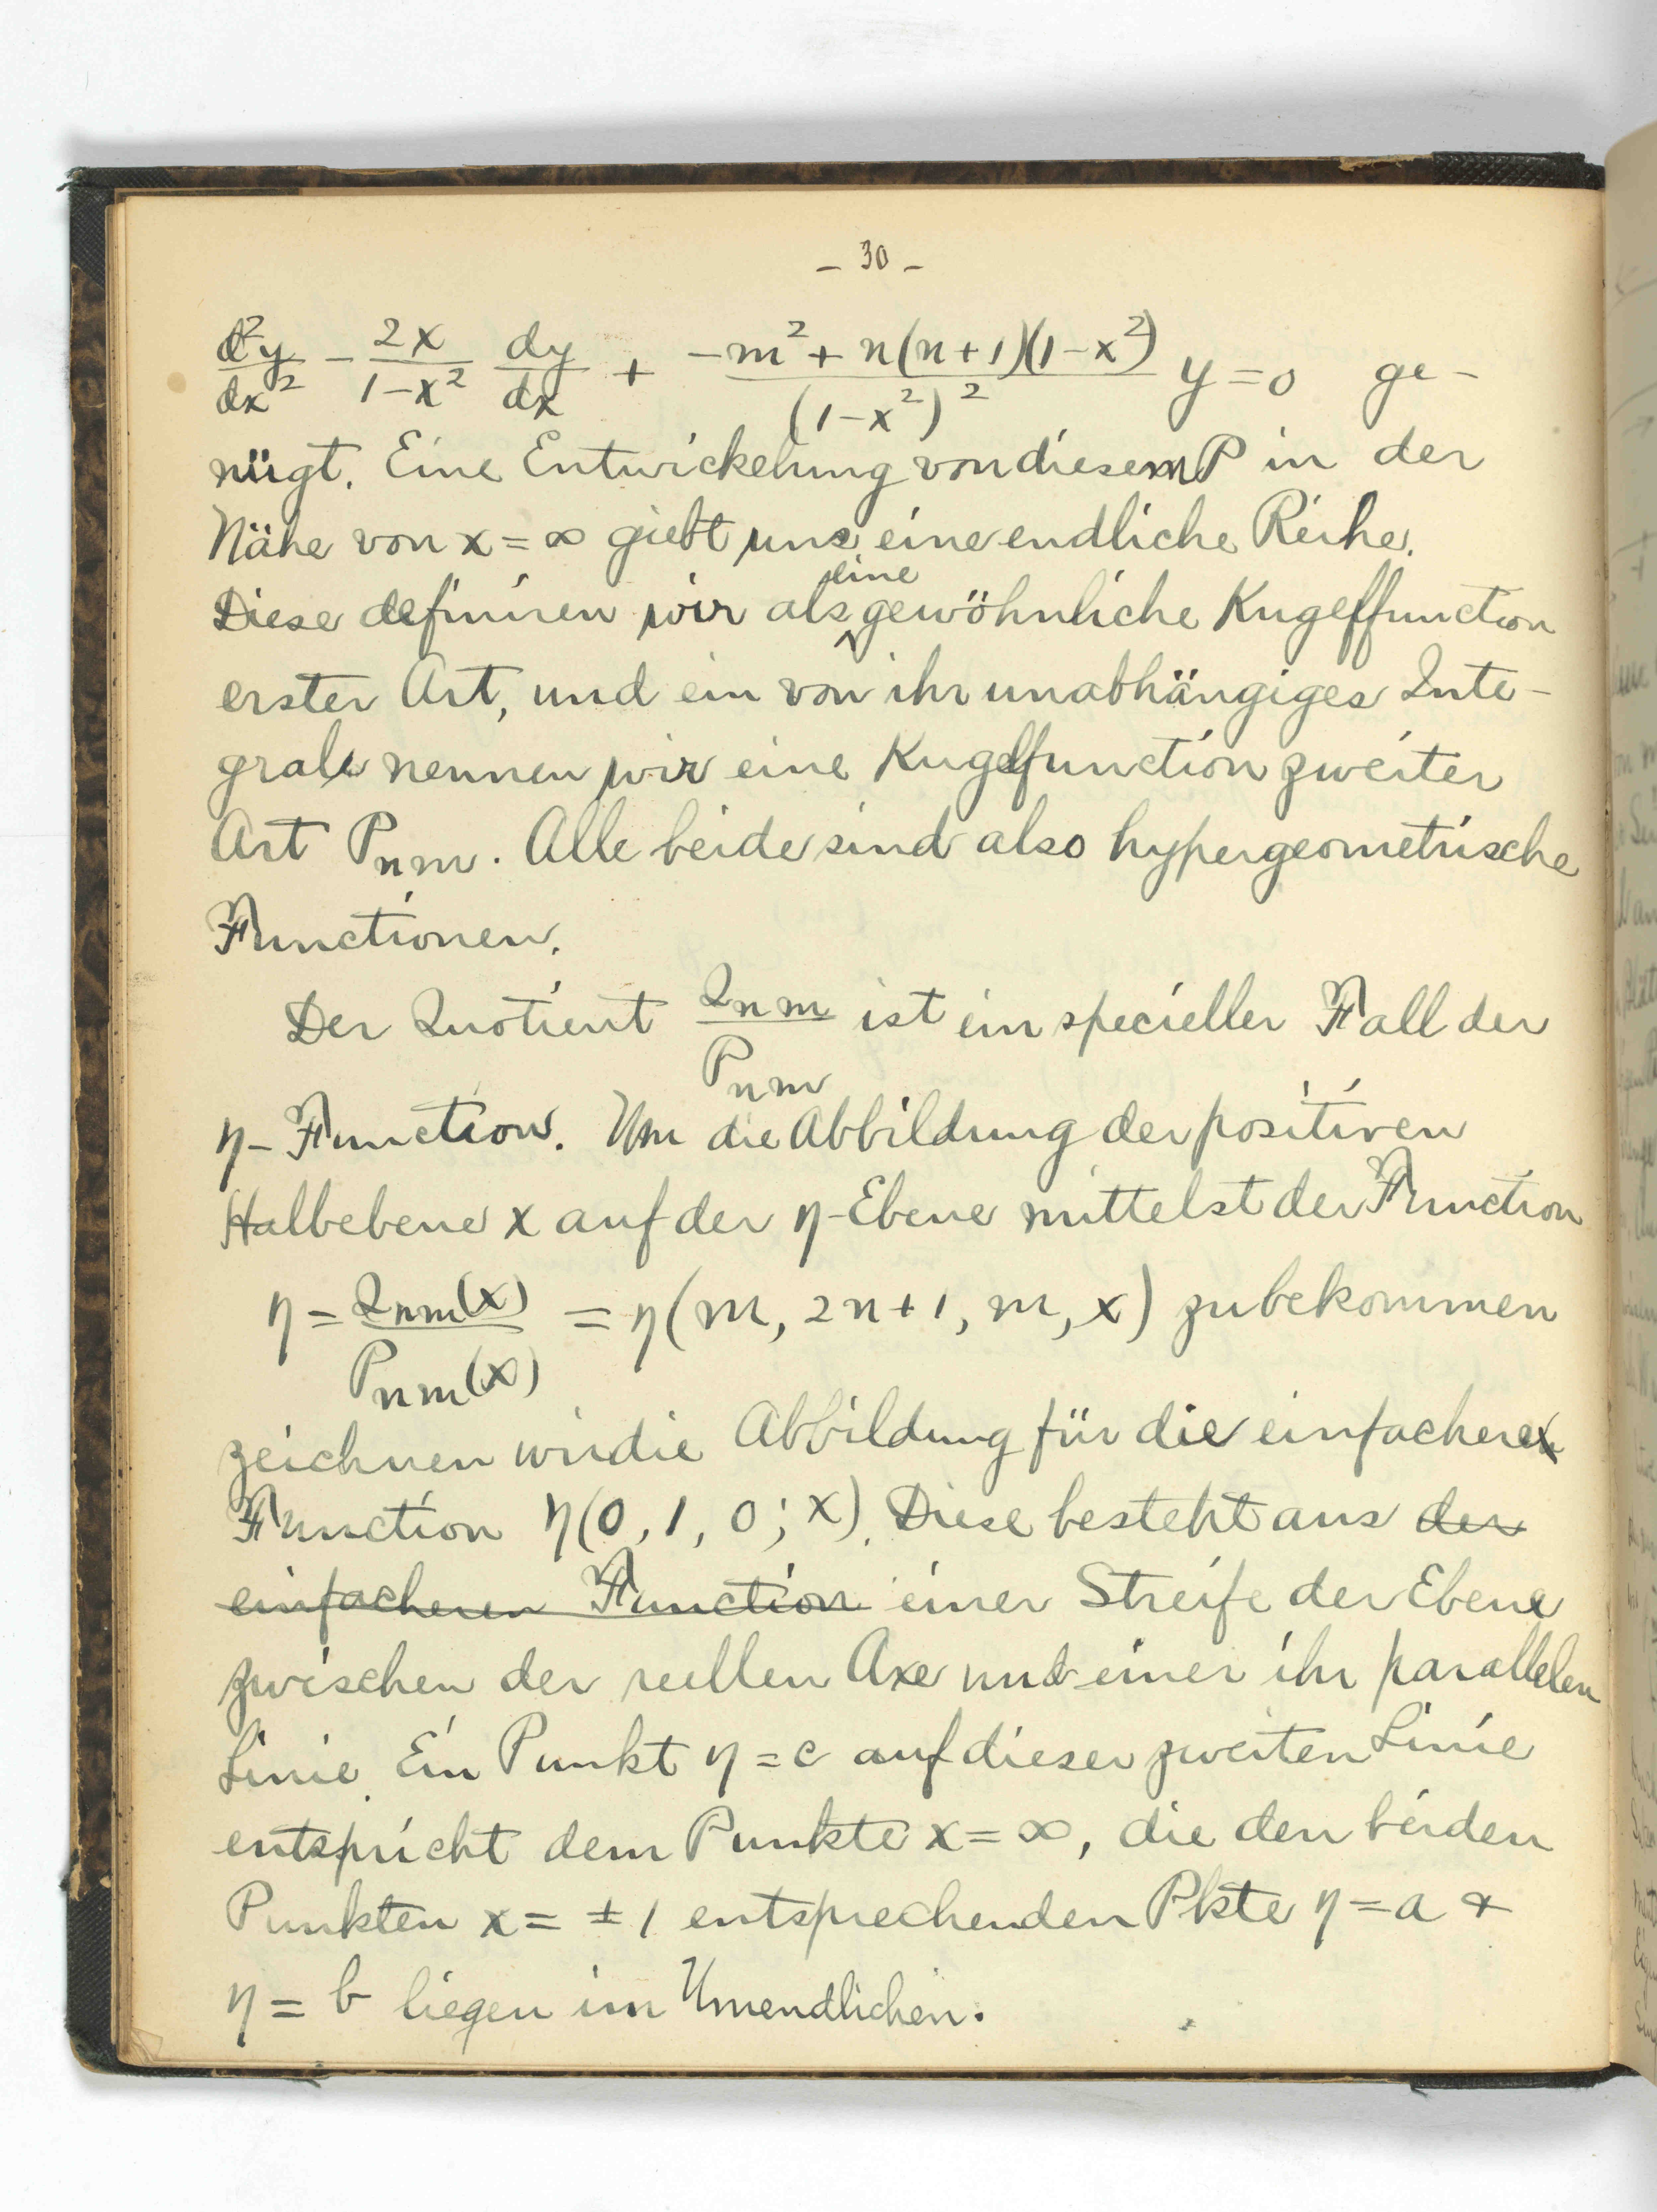 - 30 -
d²y/dx² - 2x/(1-x²) dy/dx + (-m² + n(n+1)(1-x²))/(1-x²)² y = 0 ge-
nügt. Eine Entwickelung von diesem P in der
Nähe von x = ∞ giebt uns eine endliche Reihe.
Diese definiren wir als eine gewöhnliche Kugelfunction
erster Art, und ein von ihr unabhängiges Inte-
grale nennen wir eine Kugelfunction zweiter
Art Pnm. Alle beide sind also hypergeometrische
Functionen.
Der Quotient Qnm/Pnm ist ein specieller Fall der
η-Function. Um die Abbildung der positiven
Halbebene x auf der η-Ebene mittelst der Function
η = Qnm(x)/Pnm(x) = η(m, 2n+1, m, x) zu bekommen
zeichnen wir die Abbildung für die einfachere
Function η(0, 1, 0; x). Diese besteht aus der
einfacheren Function einer Streife der Ebene
zwischen der reellen Axe und einer ihr parallelen
Linie. Ein Punkt η = c auf dieser zweiten Linie
entspricht dem Punkte x = ∞, die den beiden
Punkten x = ±1 entsprechenden Pkte η = a &
η = b liegen im Unendlichen.